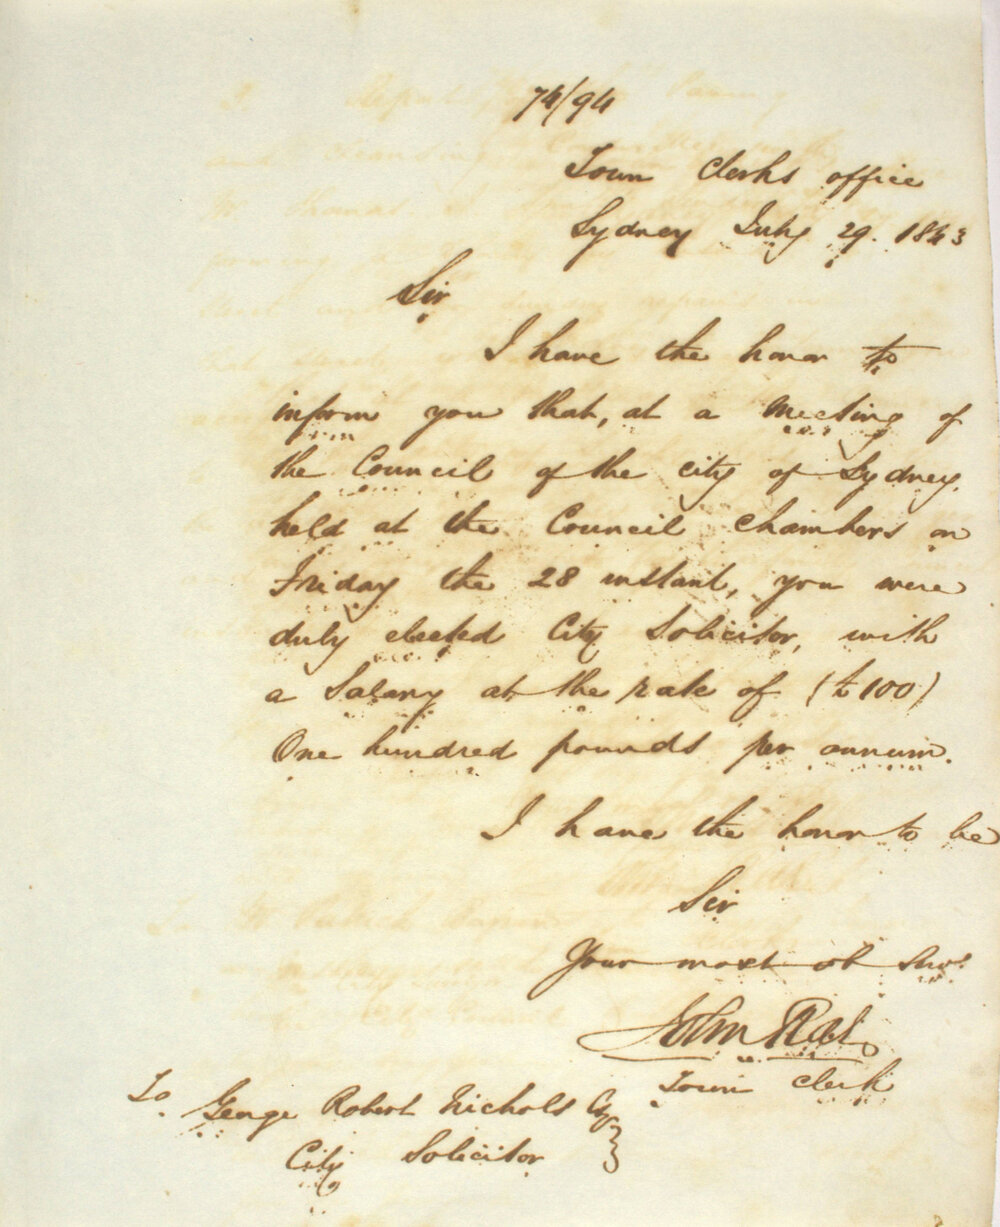 74/94
Town Clerks office
Sydney July 29. 1843
Sir
I have the honor to
inform you that, at a Meeting of
the Council of the city of Sydney,
held at the Council Chambers on
Friday the 28 instant, you were
duly elected City Solicitor, with
a Salary at the rate of (£100)
One hundred pounds per annum.
I have the honor to be
Sir
Your most ob Serv.t
John Rae
Town Clerk
To
George Robert Nichols Esq
City Solicitor